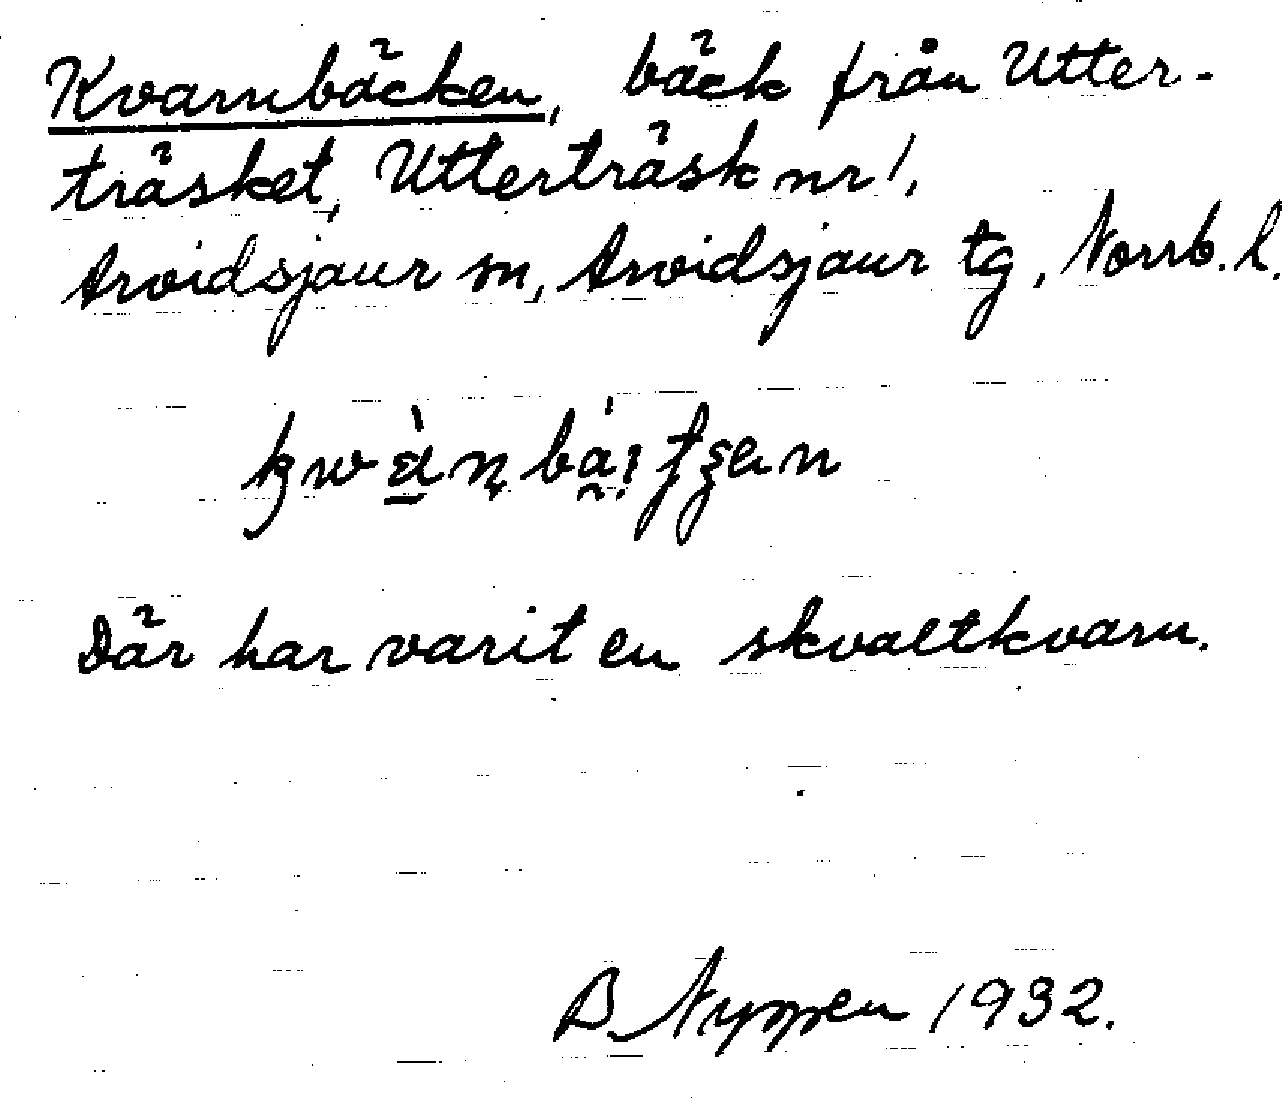 Kvarnbäcken, bäck från Utter-
träsket, Utterträsk nr 1,
Arvidsjaur sn, Arvidsjaur tg, Norrb. l.
Där har varit en skvaltkvarn.
B. Nyppen 1932.